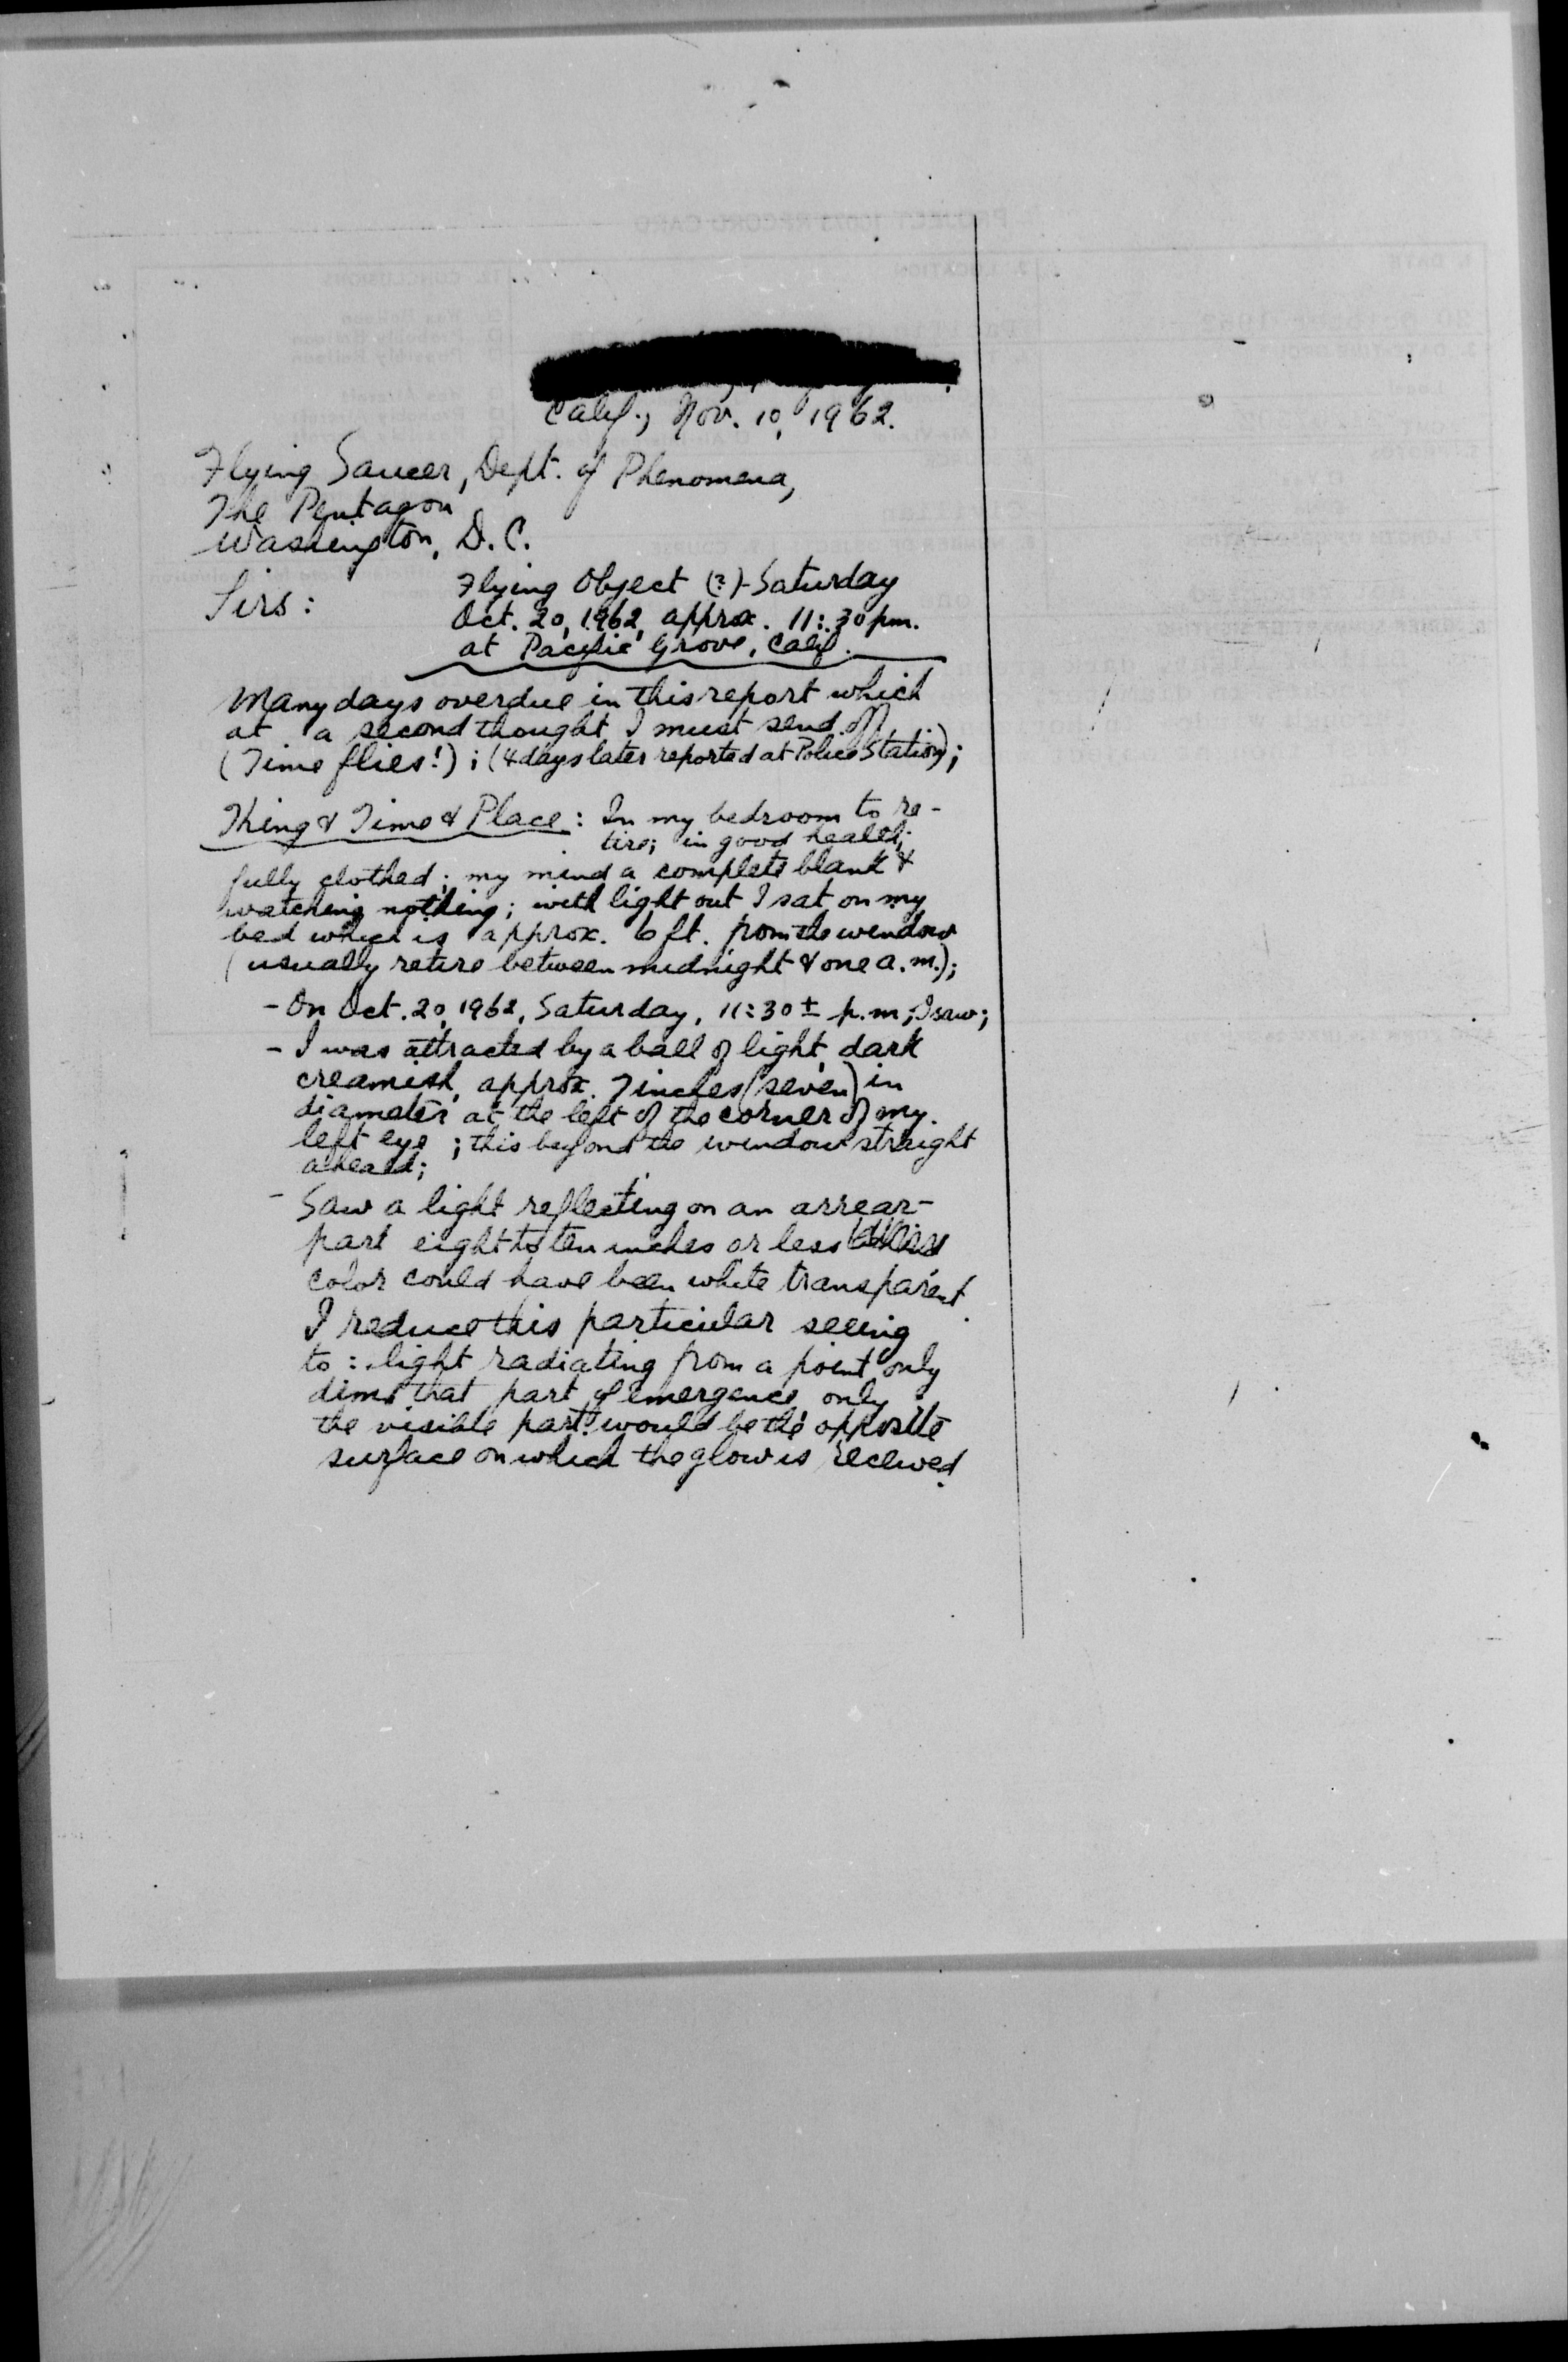 Calif., Nov. 10, 1962.
Flying Saucer, Dept. of Phenomena,
The Pentagon
Washington, D.C.
Sirs:
Flying Object (?)-Saturday
Oct. 20, 1962, approx. 11:30 pm.
at Pacific Grove, Calif.
Many days overdue in this report which
at a second thought I must send off
(Time flies!); (4 days later reported at Police Station);
Thing & Time & Place: In my bedroom to re-
tire; in good health;
fully clothed; my mind a complete blank &
watching nothing; with light out I sat on my
bed which is approx. 6 ft. from the window
(usually retire between midnight & one a.m.);
- On Oct. 20, 1962, Saturday, 11:30± p.m; I saw;
- I was attracted by a ball of light, dark
creamish, approx. 7 inches (seven) in
diameter at the left of the corner of my
left eye; this beyond the window straight
ahead;
- Saw a light reflecting on an arrear-
part eight to ten inches or less
color could have been white transparent.
I reduce this particular seeing
to: light radiating from a point only
dims that part of emergence, only
the visible part would be the opposite
surface on which the glow is received.
PROJECT 10073 RECORD CARD
1. DATE
2. LOCATION
12. CONCLUSIONS
Was Balloon
Probably Balloon
Possibly Balloon